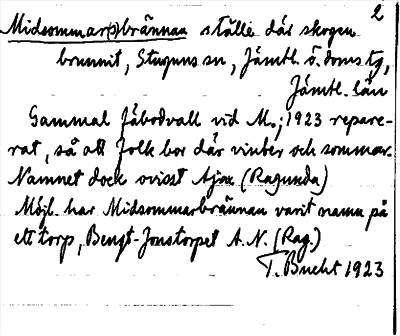 2
Midsommar(s)brännan ställe där skogen
brunnit, Stuguns sn, Jämtl. ö. doms tg,
Jämtl. län
Gammal fäbodvall vid M.; 1923 repare-
rat, så att folk bor där vinter och sommar.
Namnet dock ovisst (Ragunda)
Möjl. har Midsommarbrännan varit namn på
ett torp, Bengt-Jonstorpet A.N. (Rag.)
T. Bucht 1923